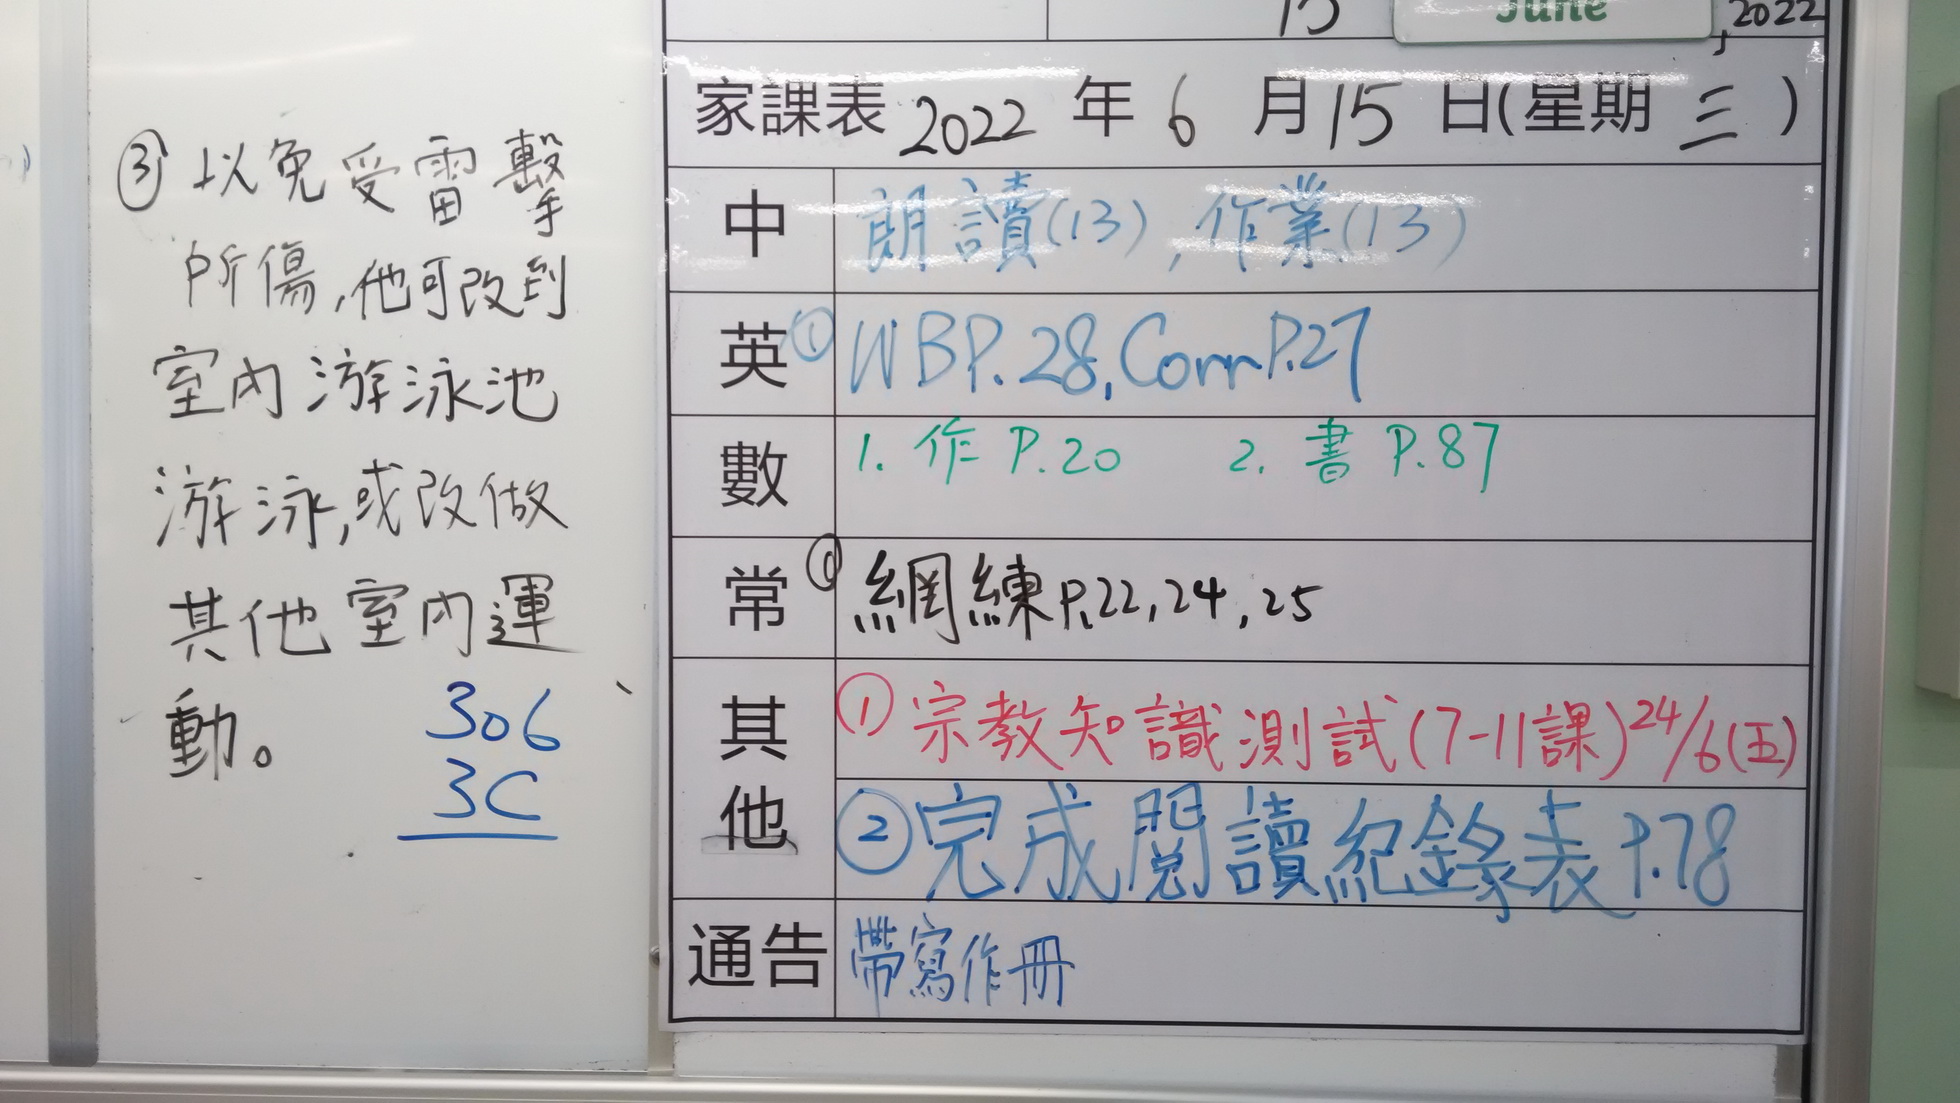 ③ 以免受雷擊
所傷,他可改到
室內游泳池
游泳,或改做
其他室內運
動。
306
3C
15 June , 2022
家課表 2022 年 6 月 15 日(星期 三 )
中 朗讀(13), 作業(13)
英 ① WBP.28, Corr P.27
數 1. 作 P.20 2. 書 P.87
常 ① 網練 P.22, 24, 25
其他 ① 宗教知識測試(7-11課)24/6(五)
② 完成閱讀紀錄表 P.78
通告 帶寫作冊